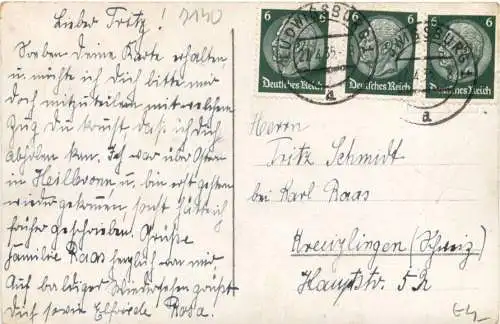 Lieber Fritz! 2140
Soeben deine Karte erhalten
u. möchte ich Dich bitte mir
doch mitzuteilen mit welchem
Zug Du kommst daß ich Dich
abholen kann. Ich war über Ostern
in Heilbronn u. bin erst gestern
wiedergekommen sonst hätte ich
früher geschrieben. Grüße
Familie Raas herzlich von mir
Auf baldiges Wiedersehen grüßt
Dich sowie Elfriede Rosa.
6 6 6
LUDWIGSBURG
Deutsches Reich Deutsches Reich Deutsches Reich
a a
Herrn
Fritz Schmidt
bei Karl Raas
Kreuzlingen (Schweiz)
Hauptstr.